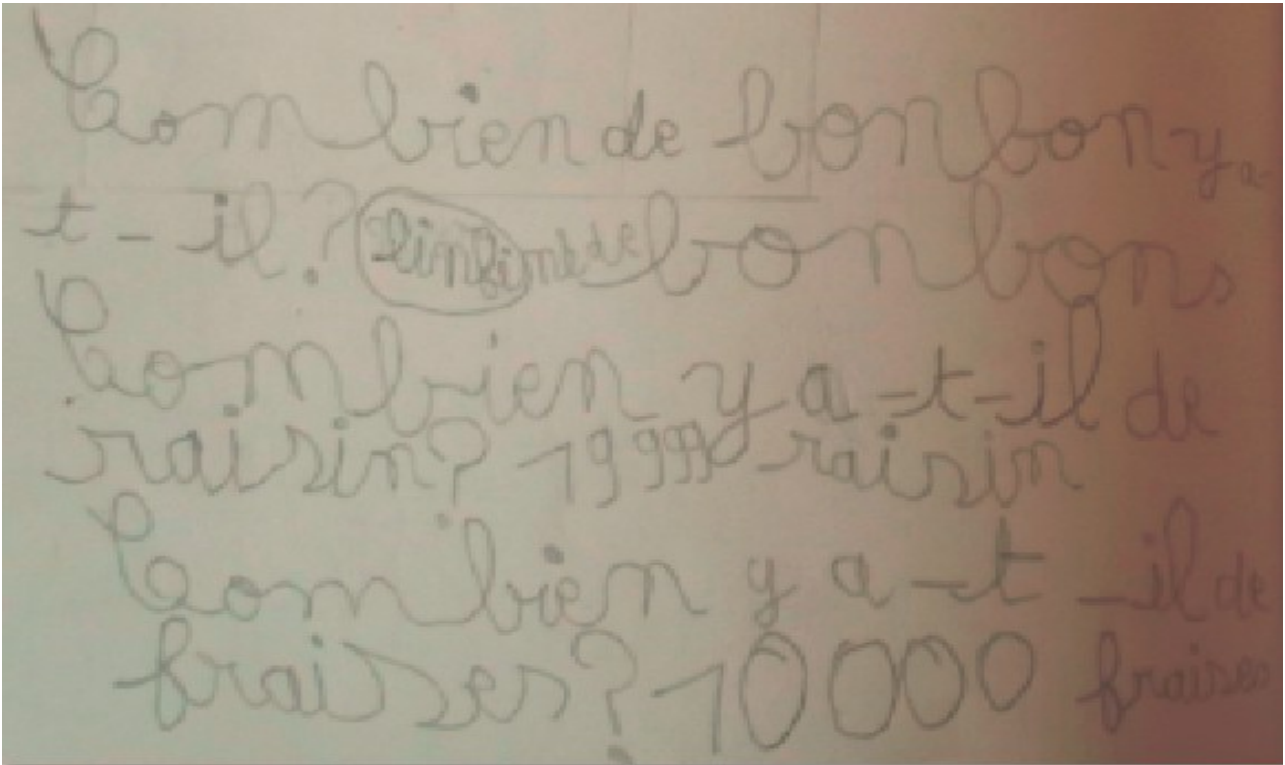 Combien de bonbon y a-
t-il ? linfinité de bonbons
Combien y a-t-il de
raisin? 19999 raisin
Combien y a-t-il de
fraises? 10000 fraises